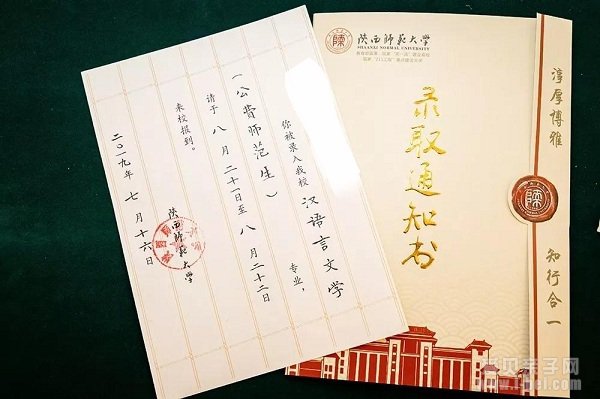 你被录入我校汉语言文学专业，
（公费师范生）
请于八月二十一日至八月二十二日
来校报到。
陕西师范大学
二〇一九年七月十六日
陕西师范大学
SHAANXI NORMAL UNIVERSITY
录取通知书
淳厚博雅
知行合一
亲子网